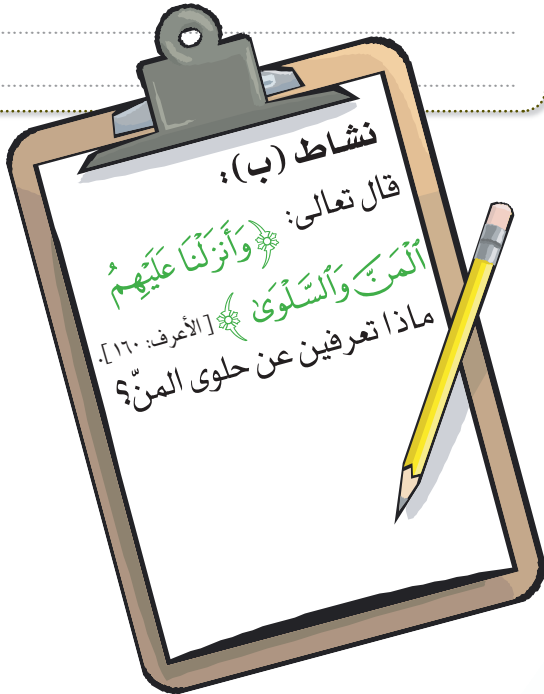 نشاط (ب):
قال تعالى: ﴿وَأَنزَلْنَا عَلَيْهِمُ
ٱلْمَنَّ وَٱلسَّلْوَىٰ﴾ [الأعرف: ١٦٠].
ماذا تعرفين عن حلوى المنّ؟